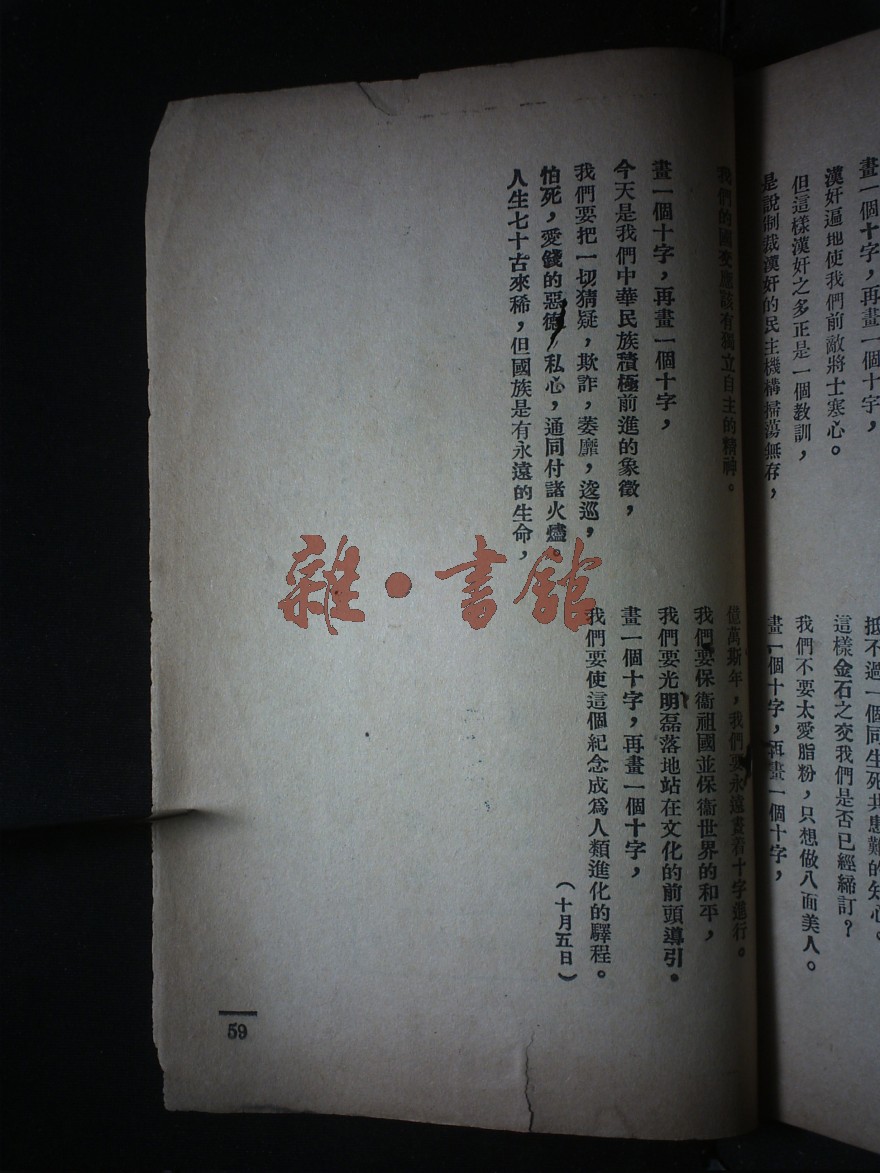 畫一個十字，再畫一個十字，
漢奸遍地使我們前敵將士寒心。
但這樣漢奸之多正是一個教訓，
是說制裁漢奸的民主機構掃蕩無存，
抵不過一個同生死共患難的知心。
這樣金石之交我們是否已經締訂？
我們不要太愛脂粉，只想做八面美人。
畫一個十字，再畫一個十字，
我們的國交應該有獨立自主的精神。
畫一個十字，再畫一個十字，
今天是我們中華民族積極前進的象徵，
我們要把一切猜疑，欺詐，萎靡，逡巡，
怕死，愛錢的惡德，私心，通同付諸火燼。
人生七十古來稀，但國族是有永遠的生命，
億萬斯年，我們要永遠畫着十字進行。
我們要保衞祖國並保衞世界的和平，
我們要光明磊落地站在文化的前頭導引。
畫一個十字，再畫一個十字，
我們要使這個紀念成爲人類進化的驛程。
（十月五日）
59
雜·書館